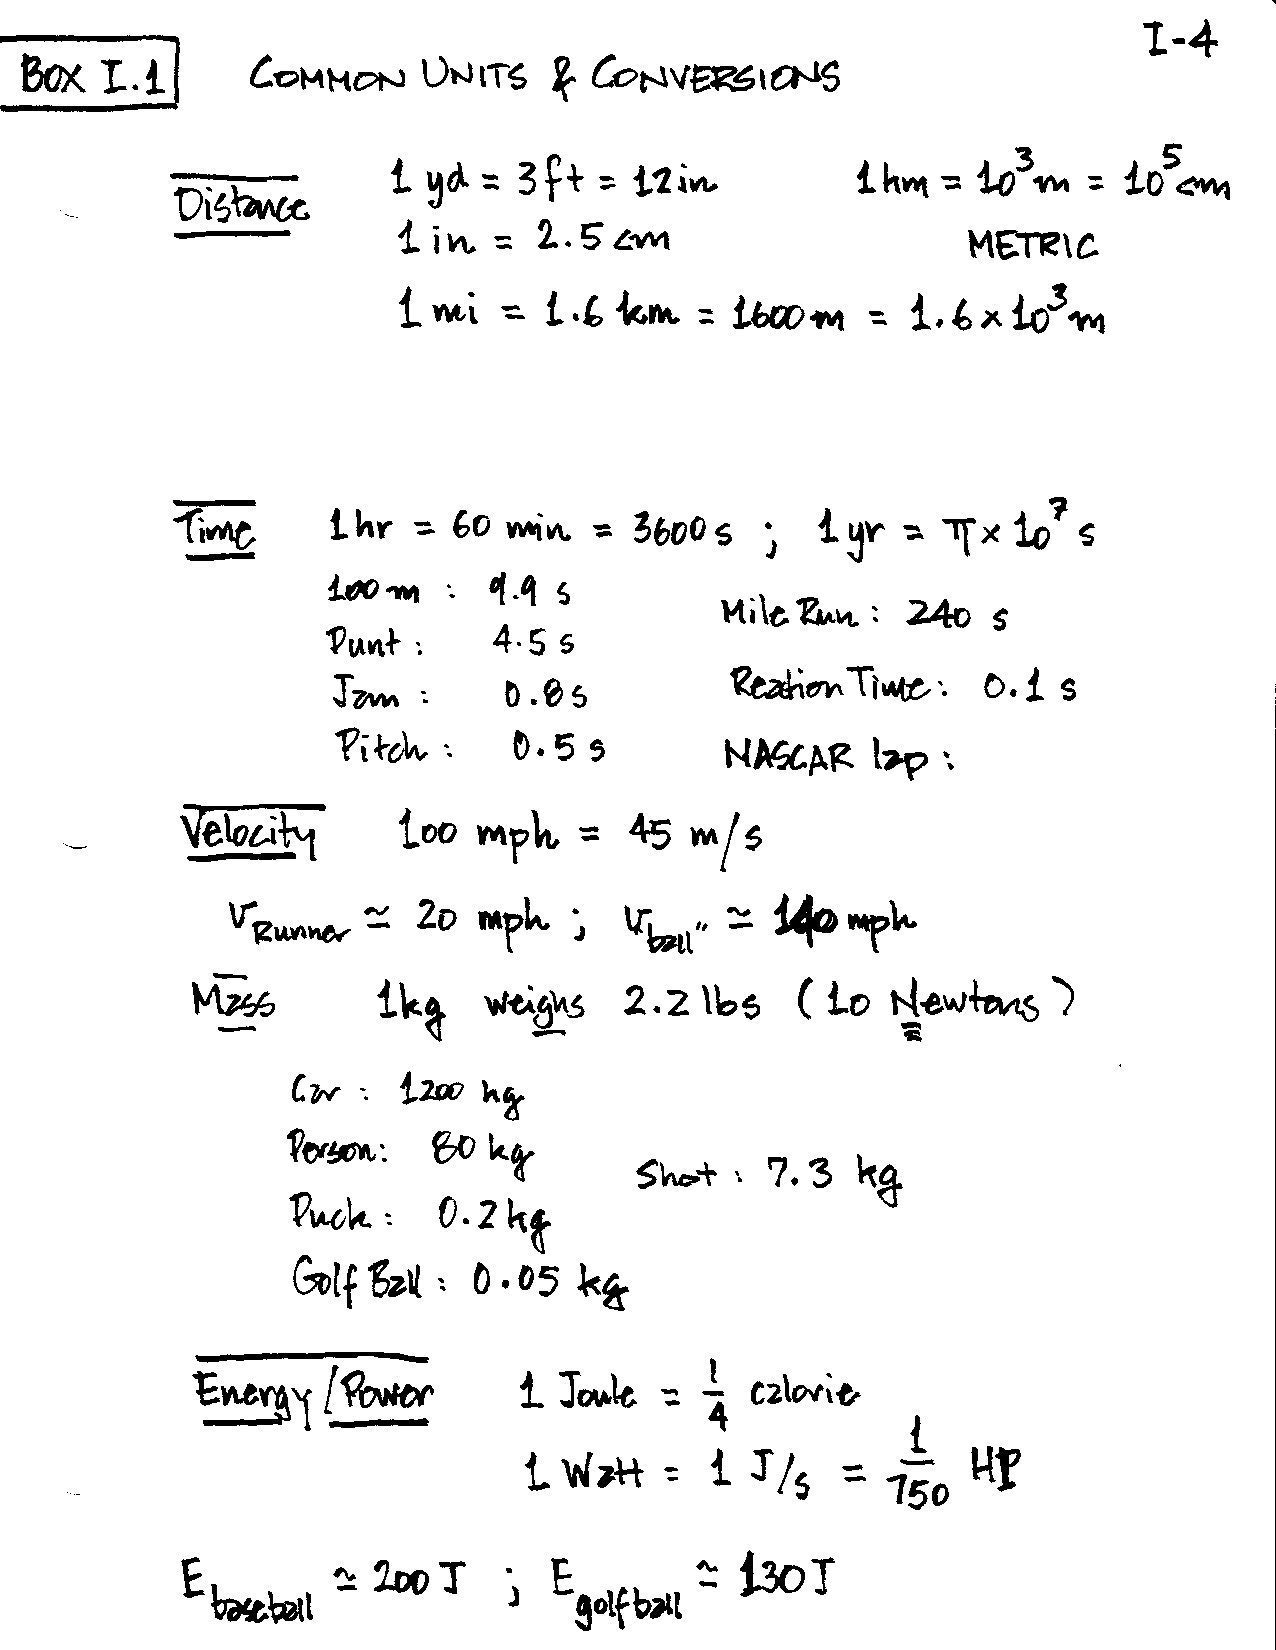 I-4
BOX I.1 COMMON UNITS & CONVERSIONS
Distance 1 yd = 3ft = 12in 1km = 10³m = 10⁵cm
1 in = 2.5 cm METRIC
1 mi = 1.6 km = 1600m = 1.6×10³m
Time 1hr = 60 min = 3600s ; 1 yr = π×10⁷ s
100m : 9.9 s
Mile Run : 240 s
Punt : 4.5 s
Jam : 0.8s
Reation Time : 0.1 s
Pitch : 0.5 s
NASCAR lap :
Velocity 100 mph = 45 m/s
v Runner ≃ 20 mph ; v "ball" ≃ 140 mph
Mass 1kg weighs 2.2 lbs (10 Newtons)
Car : 1200 kg
Person : 80 kg
Shot : 7.3 kg
Puck : 0.2 kg
Golf Ball : 0.05 kg
Energy / Power 1 Joule = 1/4 calorie
1 Watt = 1 J/s = 1/750 HP
E baseball ≃ 200 J ; E golf ball ≃ 130 J